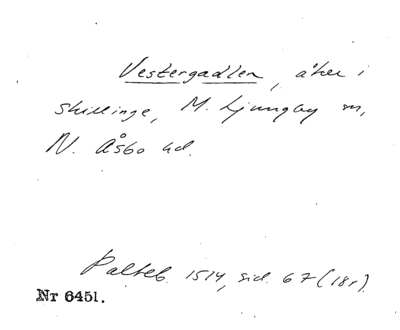 Vestergadlen, åker i
Skillinge, M. Ljungby sn,
N. Åsbo hd.
Palteb. 1514, sid. 67 (18r).
Nr 6451.